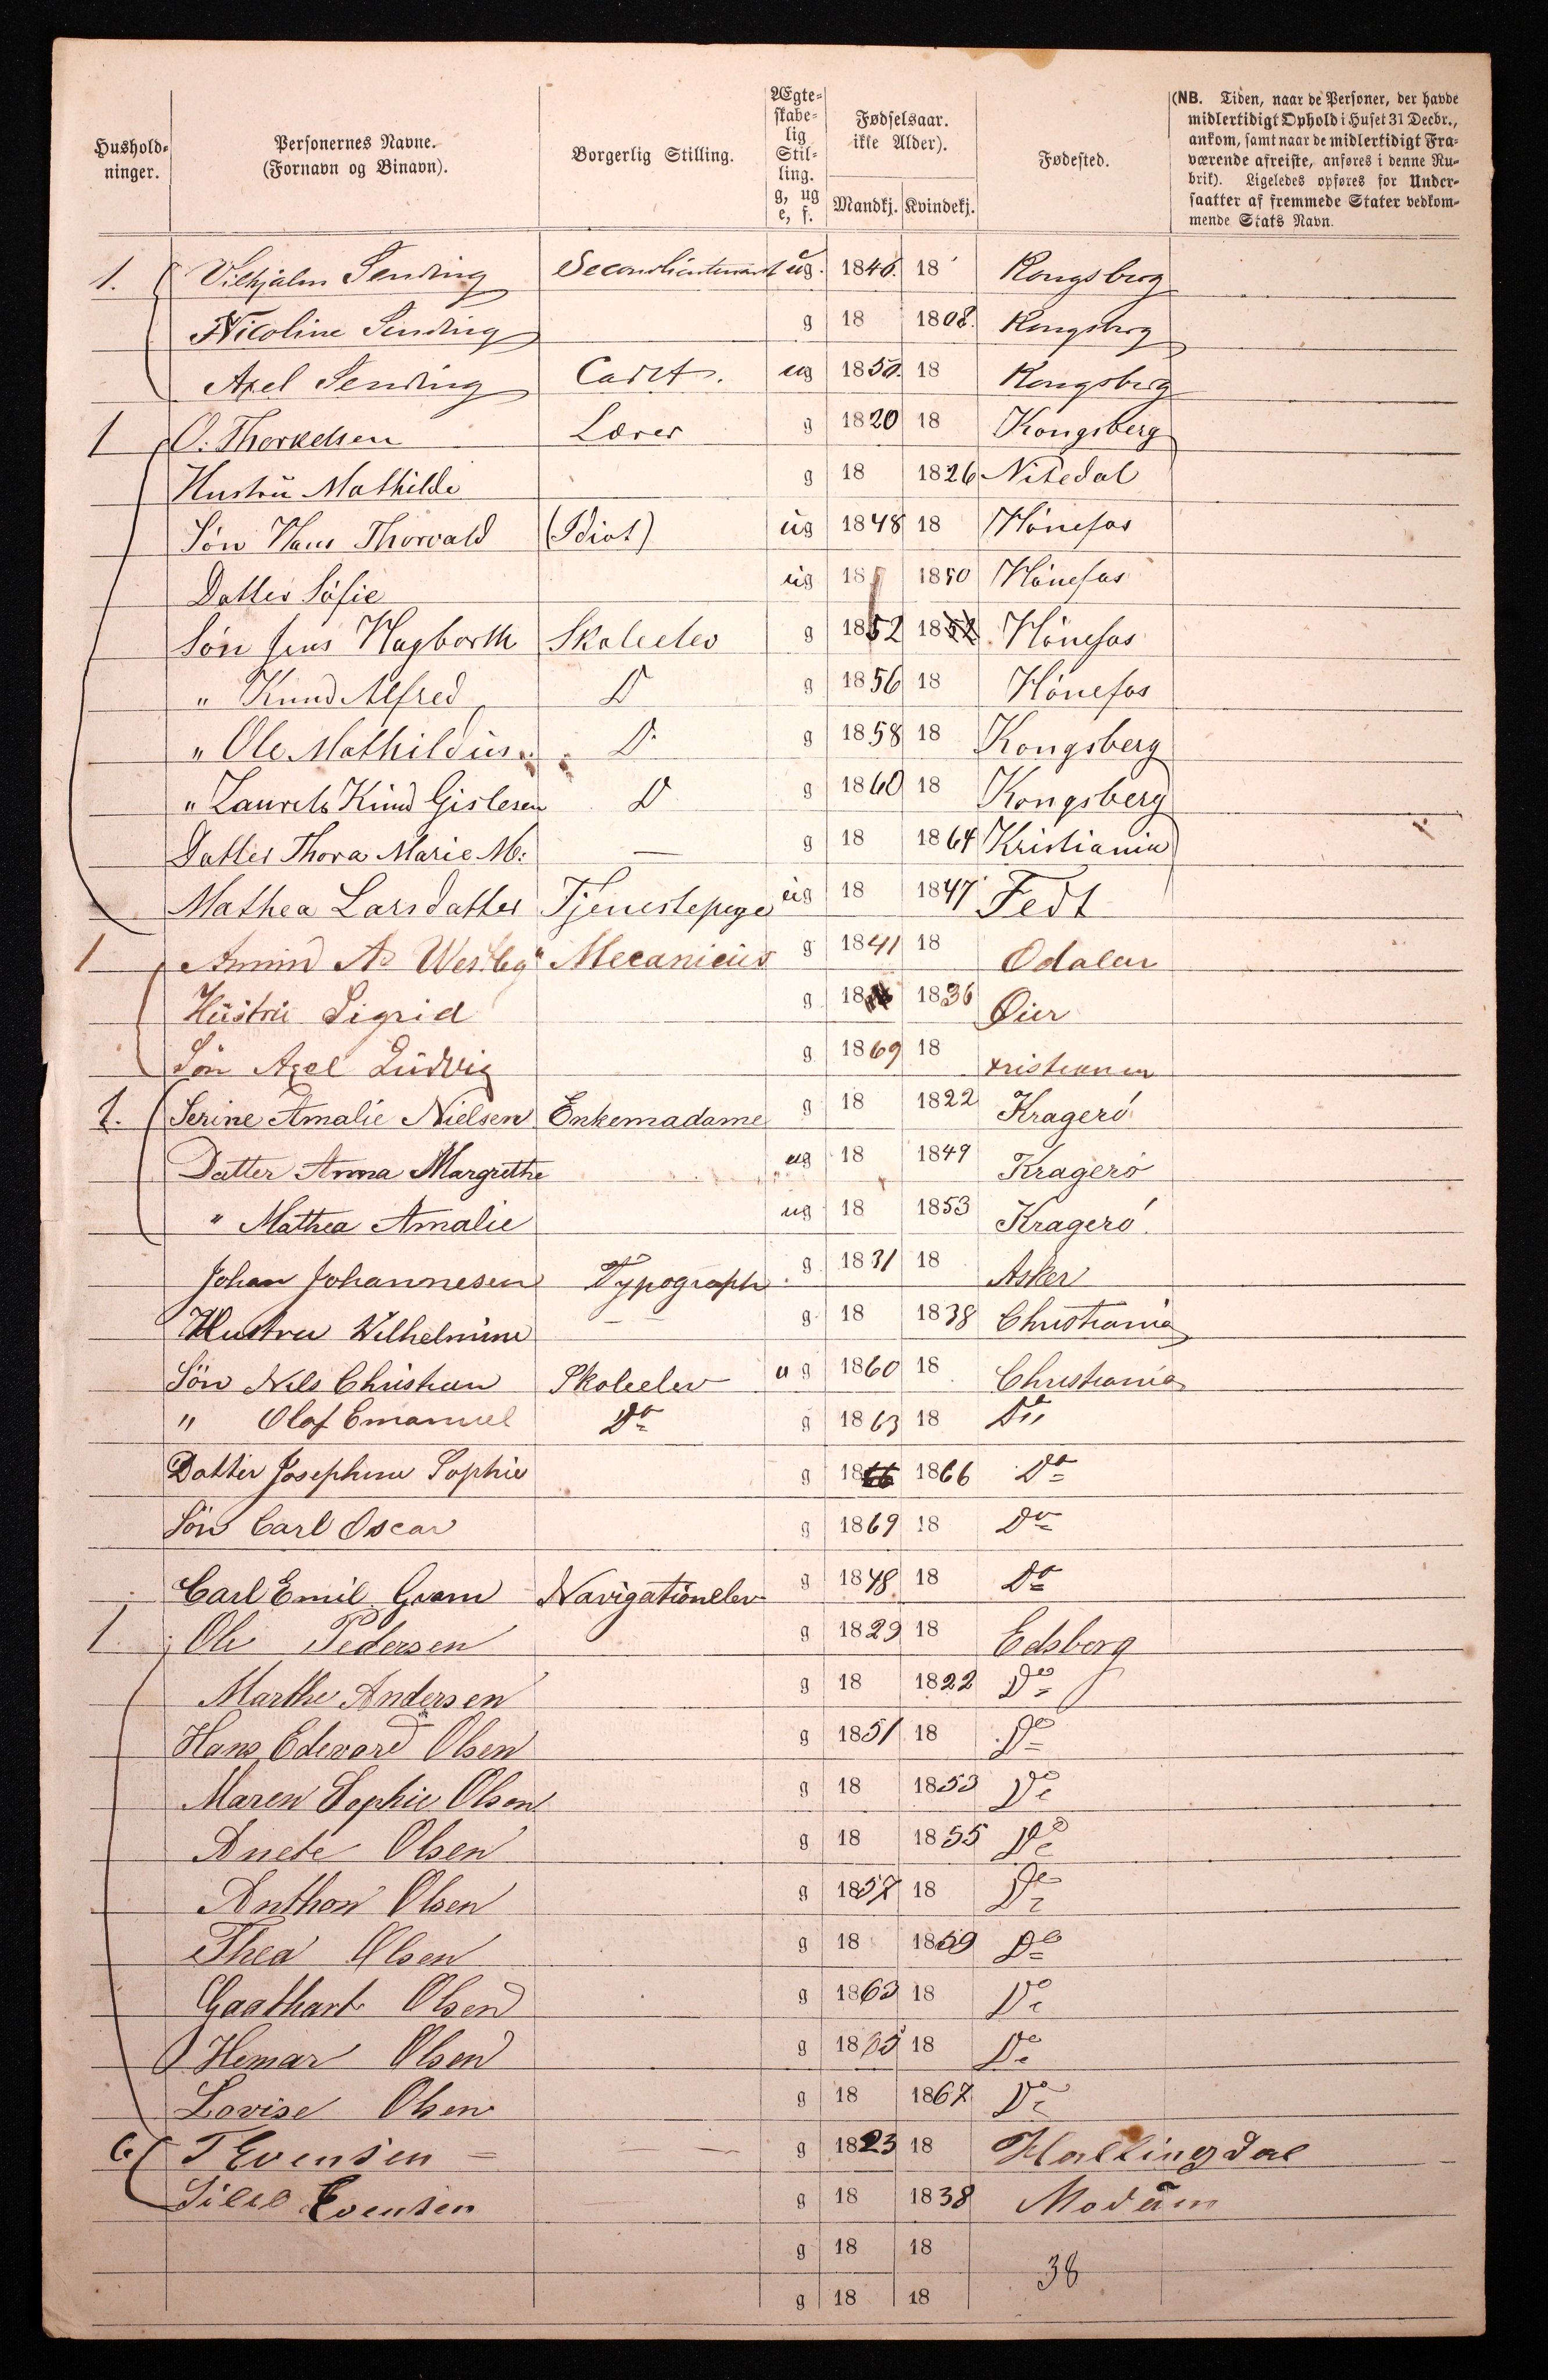 Hushold-
ninger.
Personernes Navne.
(Fornavn og Binavn).
Borgerlig Stilling.
Ægte-
skabe-
lig
Stil-
ling.
g, ug
e, f.
Fødselsaar.
ikke Alder).
Mandkj. Kvindekj.
Fødested.
(NB. Tiden, naar de Personer, der havde
midlertidigt Ophold i Huset 31 Decbr.,
ankom, samt naar de midlertidigt Fra-
værende afreiste, anføres i denne Ru-
brik). Ligeledes opføres for Under-
saatter af fremmede Stater vedkom-
mende Stats Navn.
1. Vilhjalm Sending Secondlieutenant ug. 1846. 18 Kongsberg
Nicoline Sending g 18 1808. Kongsberg
Axel Sending Cadet. ug 1850. 18 Kongsberg
1 O. Thorkelsen Lærer g 1820 18 Kongsberg
Hustru Mathilde g 18 1826 Nitedal
Søn Hans Thorvald (Idiot) ug 1848 18 Hönefos
Datter Sofie ug 18 1850 Hönefos
Søn Jens Hagbarth Skoleelev g 1852 1852 Hönefos
" Knud Alfred D g 1856 18 Hönefos
" Ole Mathildius D g 1858 18 Kongsberg
" Laurets Knud Gislesen D g 1860 18 Kongsberg
Datter Thora Marie M: — g 18 1864 Kristiania
Mathea Larsdatter Tjenestepige ug 18 1847 Fedt
1 A. Westbg Mecanicus g 1841 18 Odalen
Hustru Sigrid g 18 1836 Øier
Søn Axel Ludvig g 1869 18 Kristiania
1. Serine Amalie Nielsen Enkemadame g 18 1822 Kragerö
Datter Anna Margrethe ug 18 1849 Kragerö
" Mathea Amalie ug 18 1853 Kragerö.
Johan Johannesen Typograph g 1831 18 Asker
Hustru Wilhelmine — — g 18 1838 Christiania
Sön Nils Christian Skoleelev u g 1860 18 Christiania
" Olaf Emanuel Do g 1863 18 Do
Datter Josephine Sophie g 1866 1866 Do
Sön Carl Oscar g 1869 18 Do
Carl Emil Gram Navigationelev g 1848 18 Do
1 Ole Pedersen g 1829 18 Edsberg
Marthe Andersen g 18 1822 Do
Hans Edevard Olsen g 1851 18 Do
Maren Sophie Olsen g 18 1853 Do
Anete Olsen g 18 1855 Do
Anthon Olsen g 1857 18 Do
Thea Olsen g 18 1859 Do
Gaathart Olsen g 1863 18 Do
Hemar Olsen g 1865 18 Do
Lovise Olsen g 18 1867 Do
T Evensen = — — g 1823 18 Hallingdal
Evensen g 18 1838 Modum
g 18 18
38
g 18 18